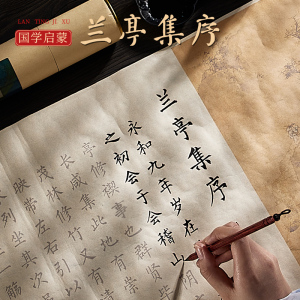 LAN TING JI XU
国学启蒙
兰亭集序
兰亭集序
永和九年岁在
之初会于会稽山
亭修禊事也群贤
长咸集此地有
茂林修竹又有
映带左右引以
坐其次